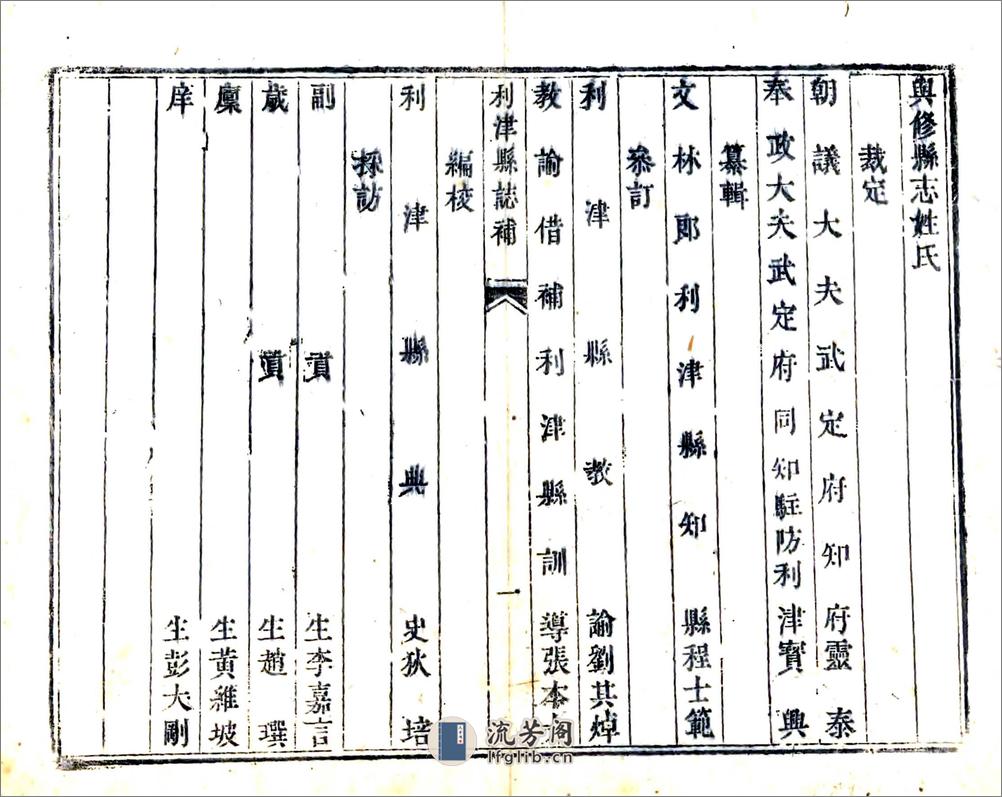 與修縣志姓氏
裁定
朝議大夫武定府知府靈泰
奉政大夫武定府同知駐防利津寳興
纂輯
文林郎利津縣知縣程士範
叅訂
利津縣教諭劉其焯
教諭借補利津縣訓導張本
利津縣誌補
一
編校
利津縣典史狄培
採訪
副貢生李嘉言
歲貢生趙璵
廩生黃維坡
庠生彭大剛
流芳阁
lfglib.cn